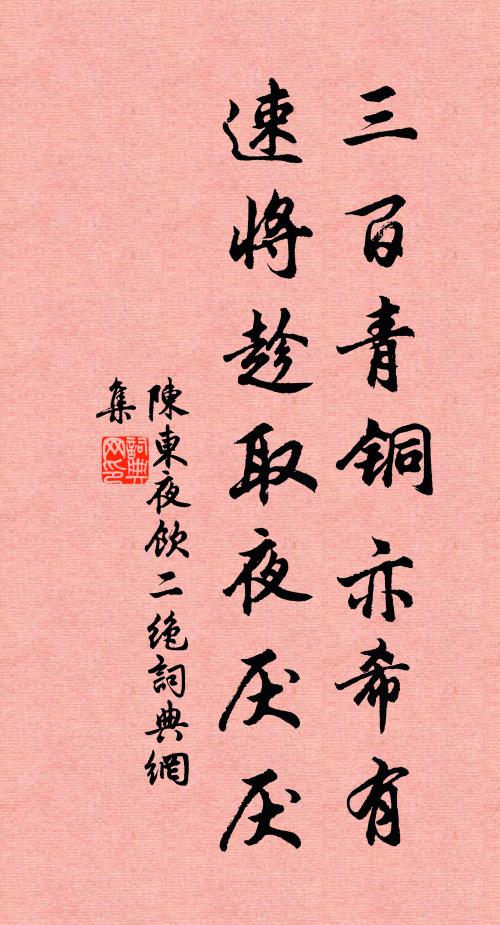 三百青铜亦希有
速将趁取夜厌厌
陳東夜飲二绝詞典網
集
詞典网印